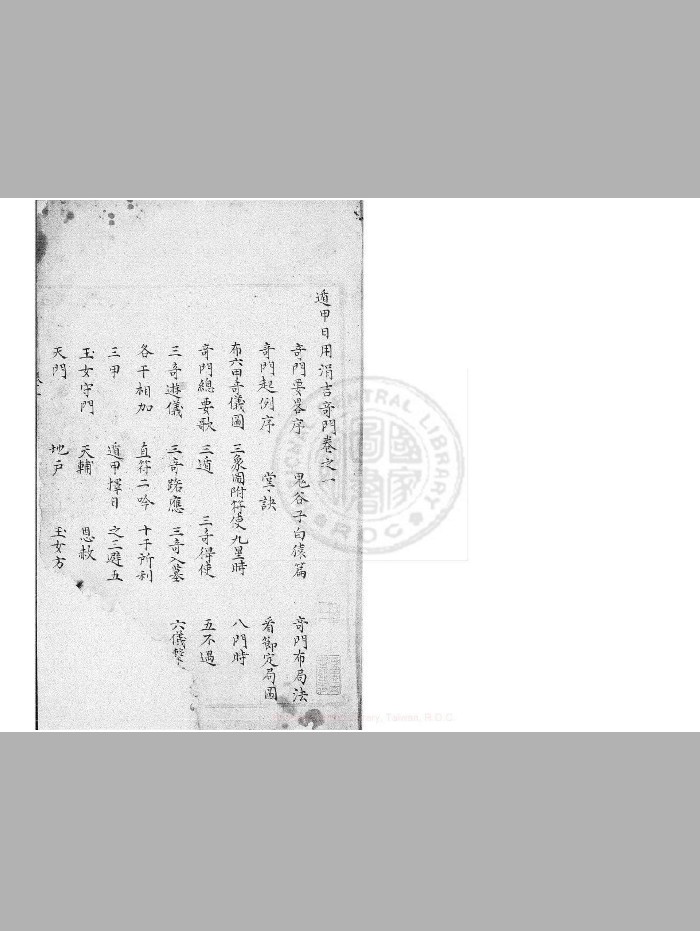 遁甲日用涓吉奇門卷之一
奇門要畧序 鬼谷子白猿篇 奇門布局法
奇門起例序 堂訣 看節定局圖
布六甲奇儀圖 三象圖附符使九星時 八門時
奇門總要歌 三遁 三奇得使 五不遇
三奇遊儀 三奇路應 三奇入墓 六儀擊
各干相加 直符二吟 十干所利
三甲 遁甲擇日 之三避五
玉女守門 天輔 恩赦
天門 地戶 玉女方
CENTRAL LIBRARY
R.O.C.
國家圖書
Library, Taiwan, R.O.C.